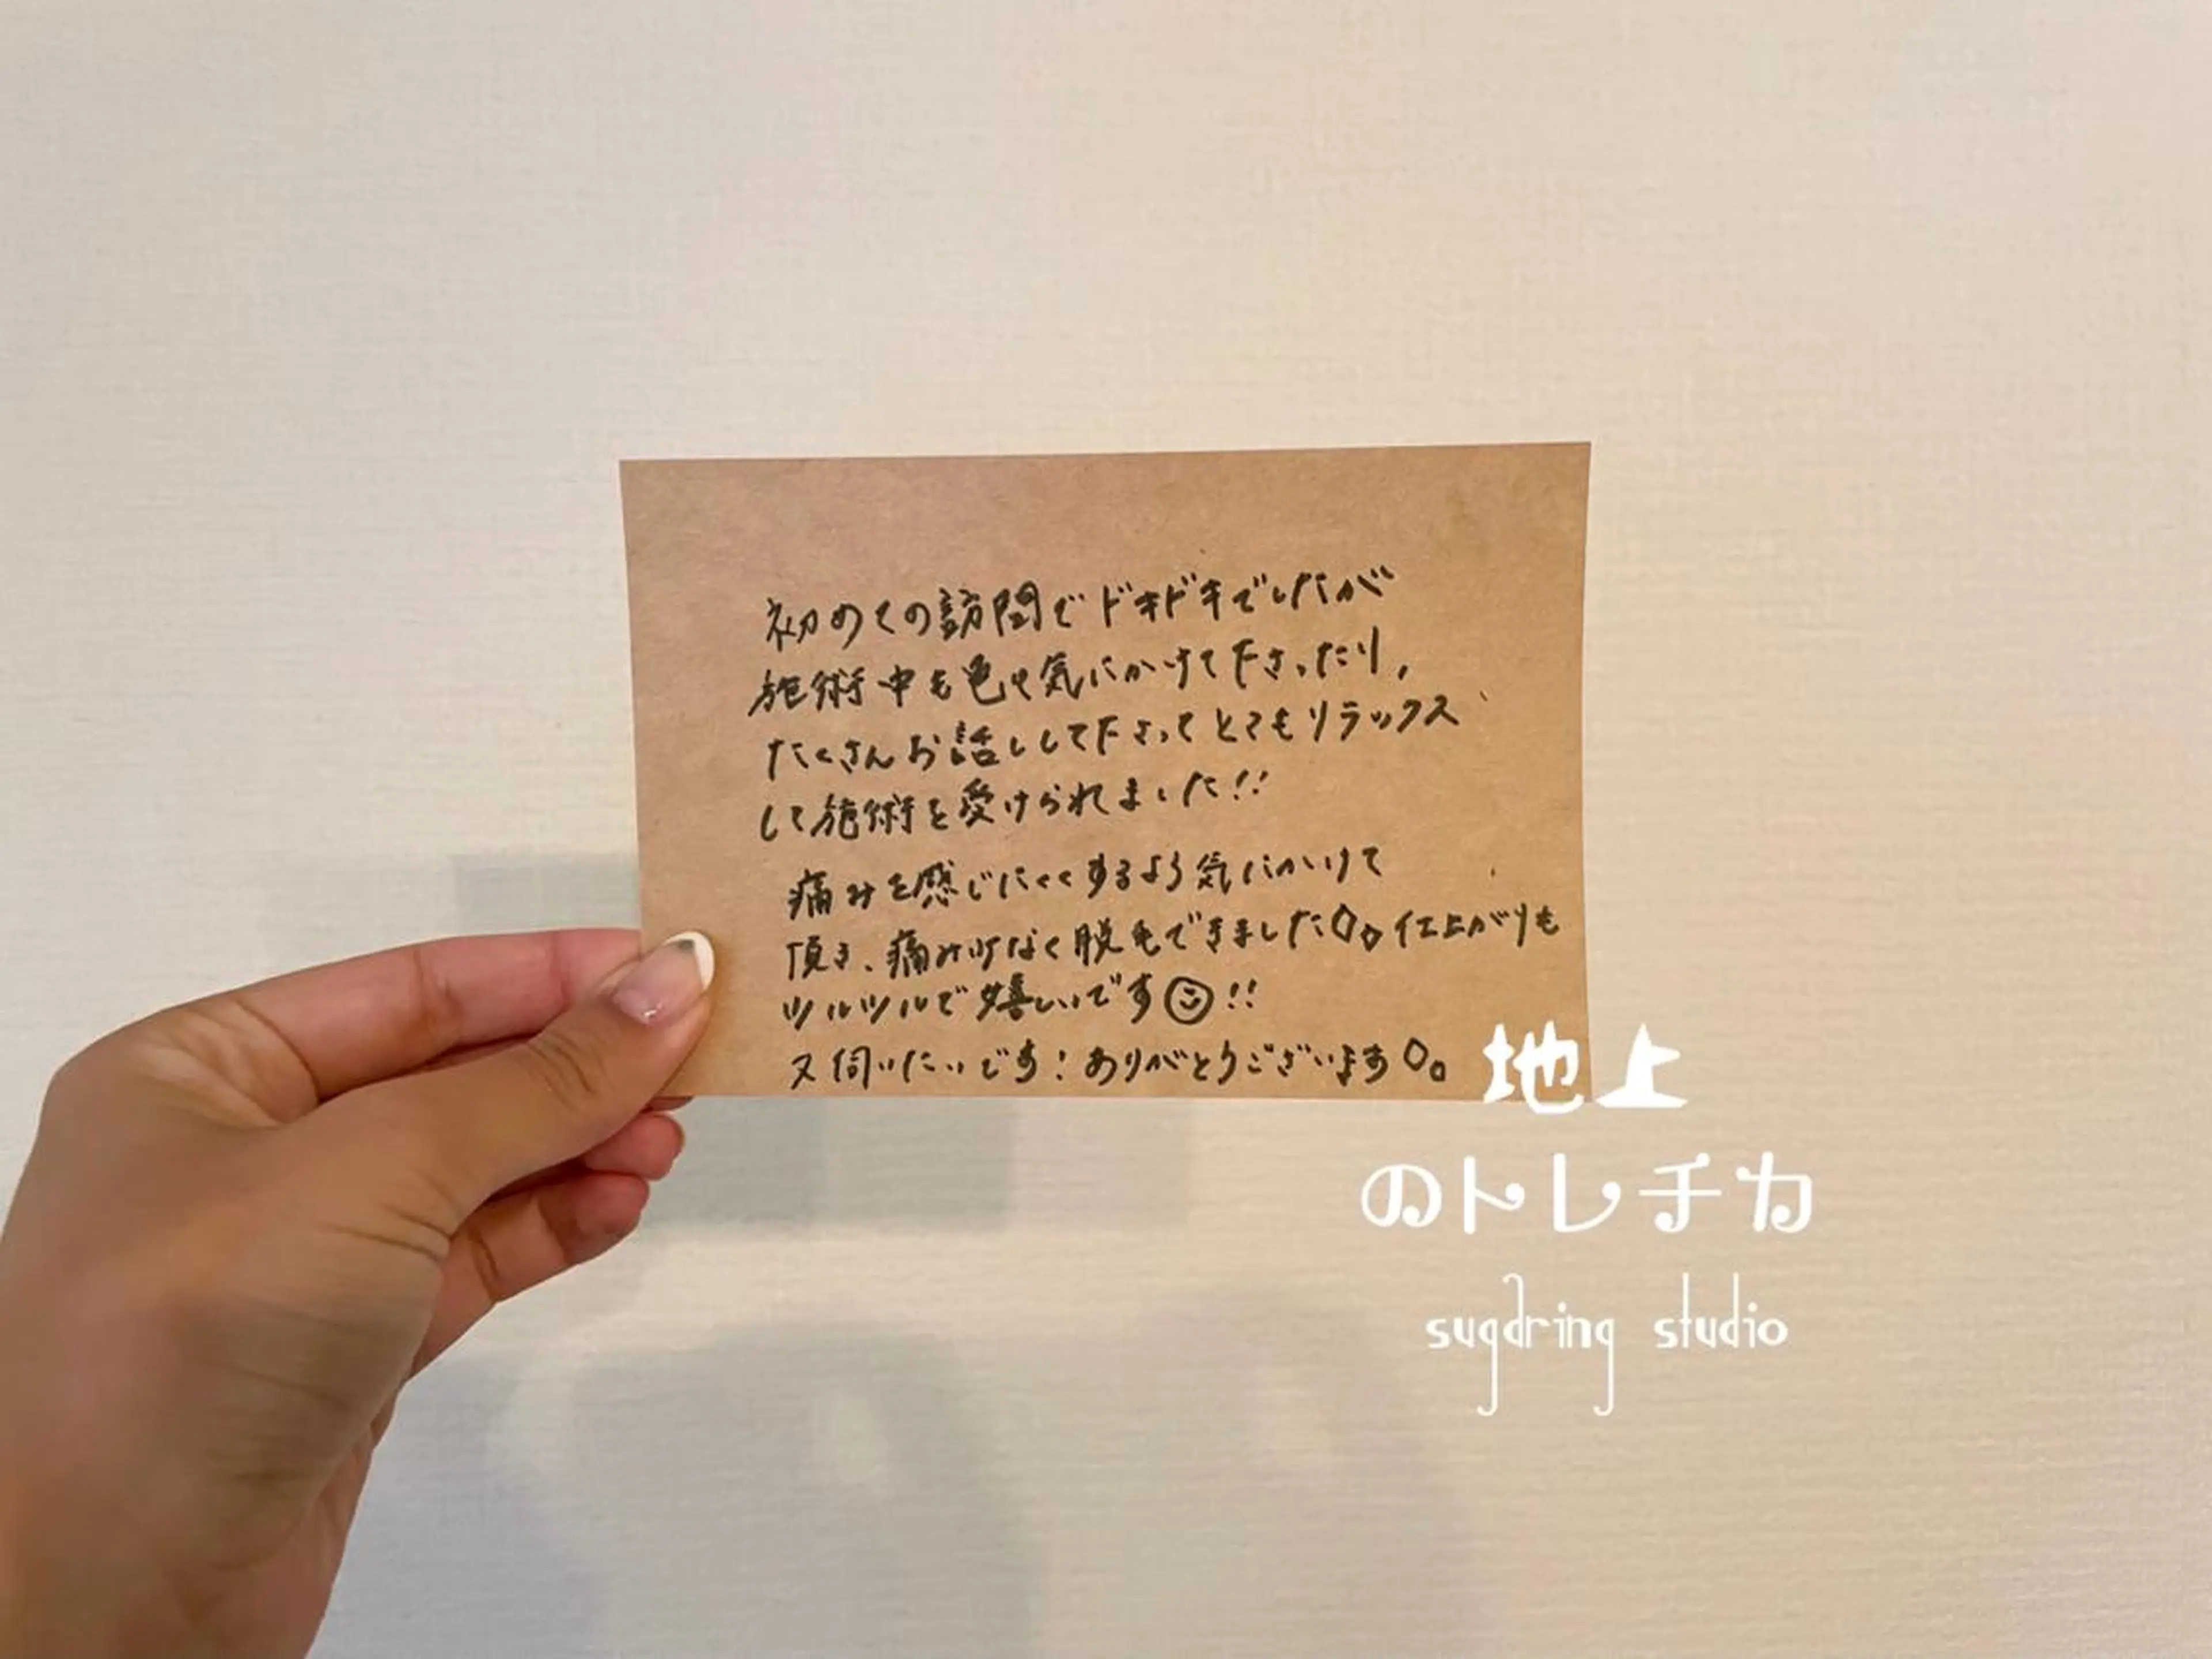 初めての訪問でドキドキでしたが
施術中も色々気にかけて下さったり、
たくさんお話しして下さってとてもリラックス
して施術を受けられました!!
痛みを感じにくくするよう気にかけて
頂き、痛み少なく脱毛できました◇◇仕上がりも
ツルツルで嬉しいです☺!!
又伺いたいです!ありがとうございます◇◇
地上
のトレチカ
sugaring studio